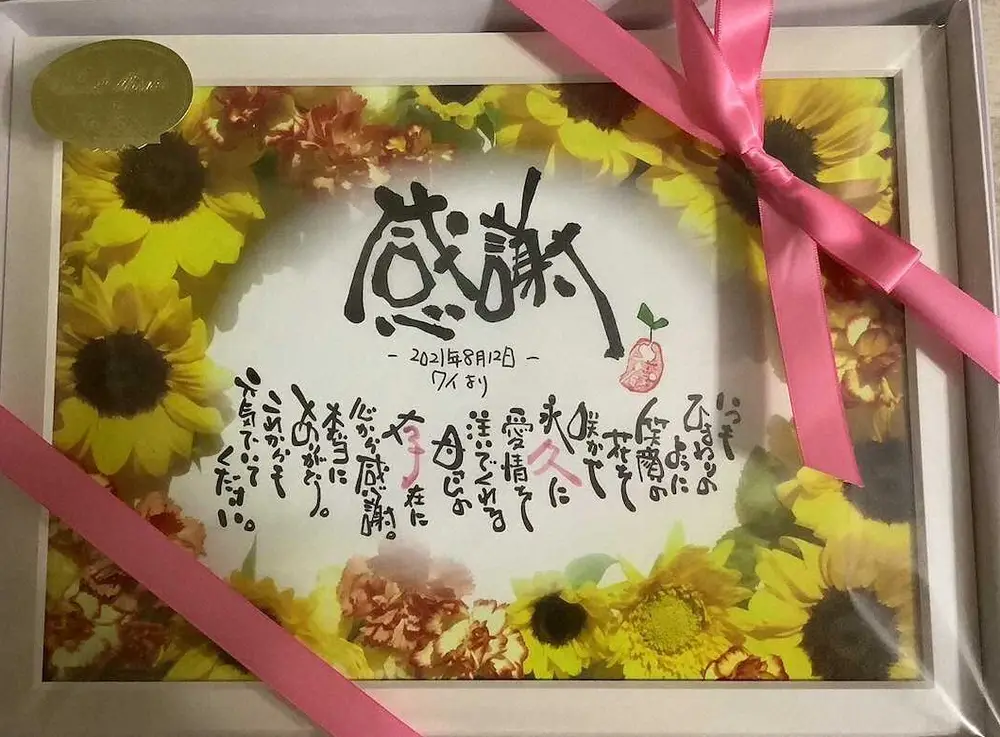 感謝
- 2021年8月12日 -
ワイより
いつも
ひまわりの
ように
笑顔の
花を
咲かせ
永久に
愛情を
注いでくれる
母
存在に
心から感謝。
本当に
ありがとう。
これからも
元気でいて
ください。